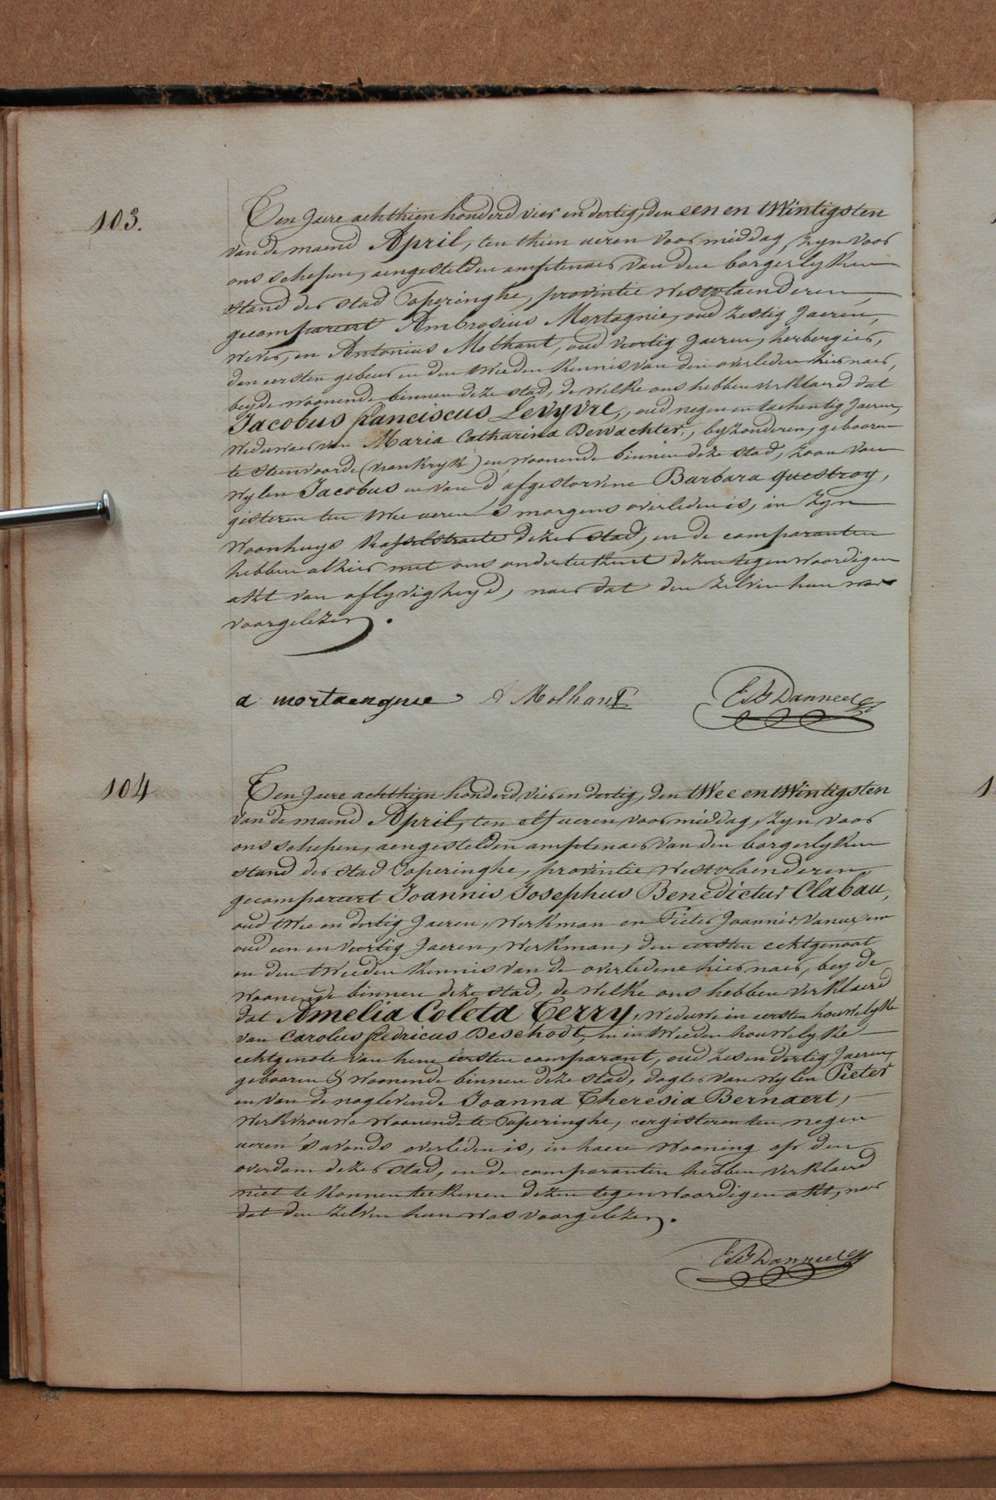 103.
Ten Jare achthien honderd vier en dertig, den een en twintigsten
van de maend April, ten thien ueren voor middag, zyn voor
ons schepen, aengestelden amptenaer van den borgerlyken
stand der stad Poperinghe, provintie Westvlaenderen,
gecompareert Ambrosius Mortagnie, oud zestig Jaeren,
wever, en Antonius Molhant, oud veertig Jaeren, herbergier,
den eersten gebeur en den tweeden kennis van den overleden hier naer,
beyde woonende binnen deze stad, de welke ons hebben verklaerd dat
Jacobus franciscus Levyvre, oud negen en tachentig Jaeren,
weduwaer van Maria Catharina Dewachter, byzonderen, gebooren
te Steenvoorde (vrankryk) en woonende binnen deze stad, zoon van
wylen Jacobus en van d'afgestorvene Barbara questroy,
gisteren ten twee ueren 's morgens overleden is, in zyn
woonhuys Kasselstraete dezer stad, en de comparanten
hebben alhier met ons onderteekent dezen tegenwoordigen
akt van aflyvigheyd, naer dat den zelven hun was
voorgelezen.
a mortaengnie A Molhant E S Danneel
104
Ten Jare achthien honderd vier en dertig, den twee en twintigsten
van de maend April, ten elf ueren voor middag, zyn voor
ons schepen, aengestelden amptenaer van den borgerlyken
stand der stad Poperinghe, provintie Westvlaenderen
gecompareert Joannis Josephus Benedictus Clabau,
oud twee en dertig Jaeren, werkman en Pieter Joannis
oud een en veertig Jaeren, werkman, den eersten echtgenoot
en den tweeden kennis van de overledene hier naer, beyde
woonende binnen deze stad, de welke ons hebben verklaerd
dat Amelia Coleta Terry, weduwe in eersten houwelyke
van Carolus fedricus Deschodt, en in tweeden houwelyke
echtgenote van hene eersten comparant, oud zes en dertig Jaeren,
gebooren & woonende binnen deze stad, dogter van wylen Pieter
en van de naglevende Joanna Theresia Bernaert,
werkvrouwe woonende te Poperinghe, eergisteren ten negen
ueren 's avonds overleden is, in haere wooning op den
overdam dezer stad, en de comparanten hebben verklaerd
niet te konnen teekenen dezen tegenwoordigen akt, naer
dat den zelven hun was voorgelezen.
E S Danneel